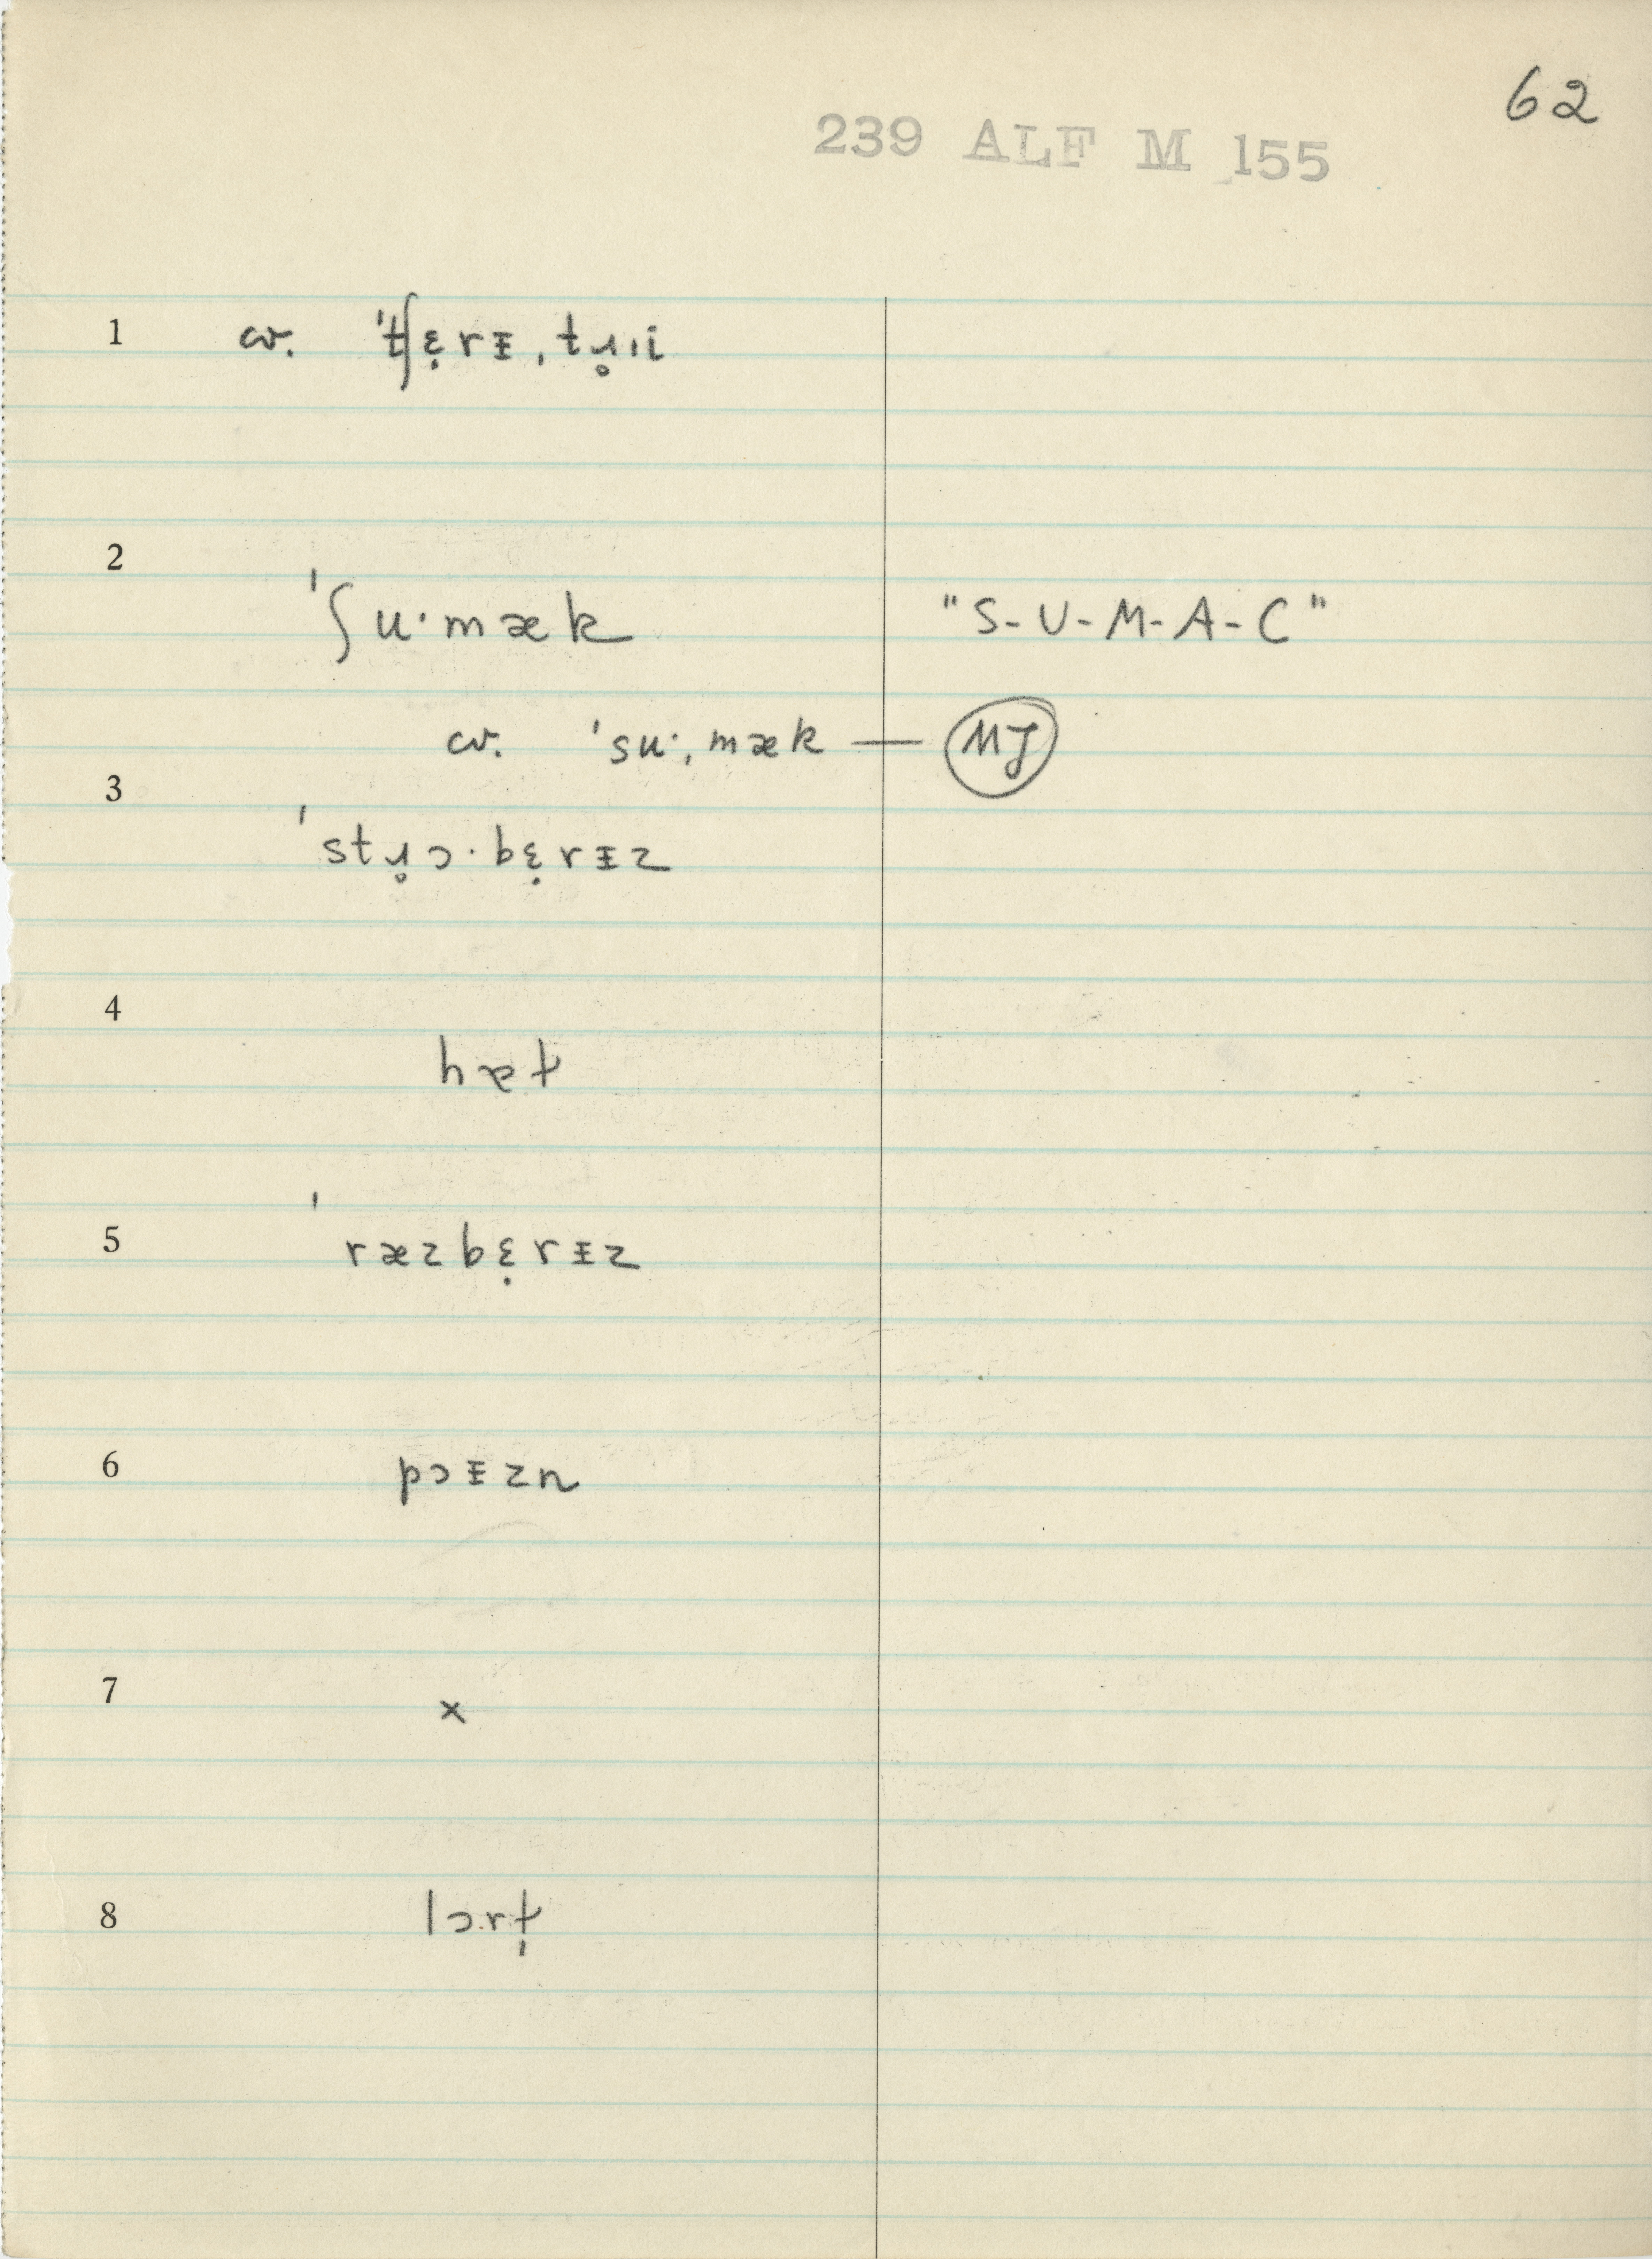 62
239 ALF M 155
1 cv. ˈtʃɛ̣rɪ̵ˌtɹ̥ıi
2
ˈʃuˑmæk "S-U-M-A-C"
cv. ˈsuˑˌmæk — MJ
3
ˈstɹ̥ɔ·bɛ̣rɪ̵z
4
hæt
5 ˈræzbɛ̣rɪ̵z
6 pɔɪ̵zn
7 x
8 lɔrt̩